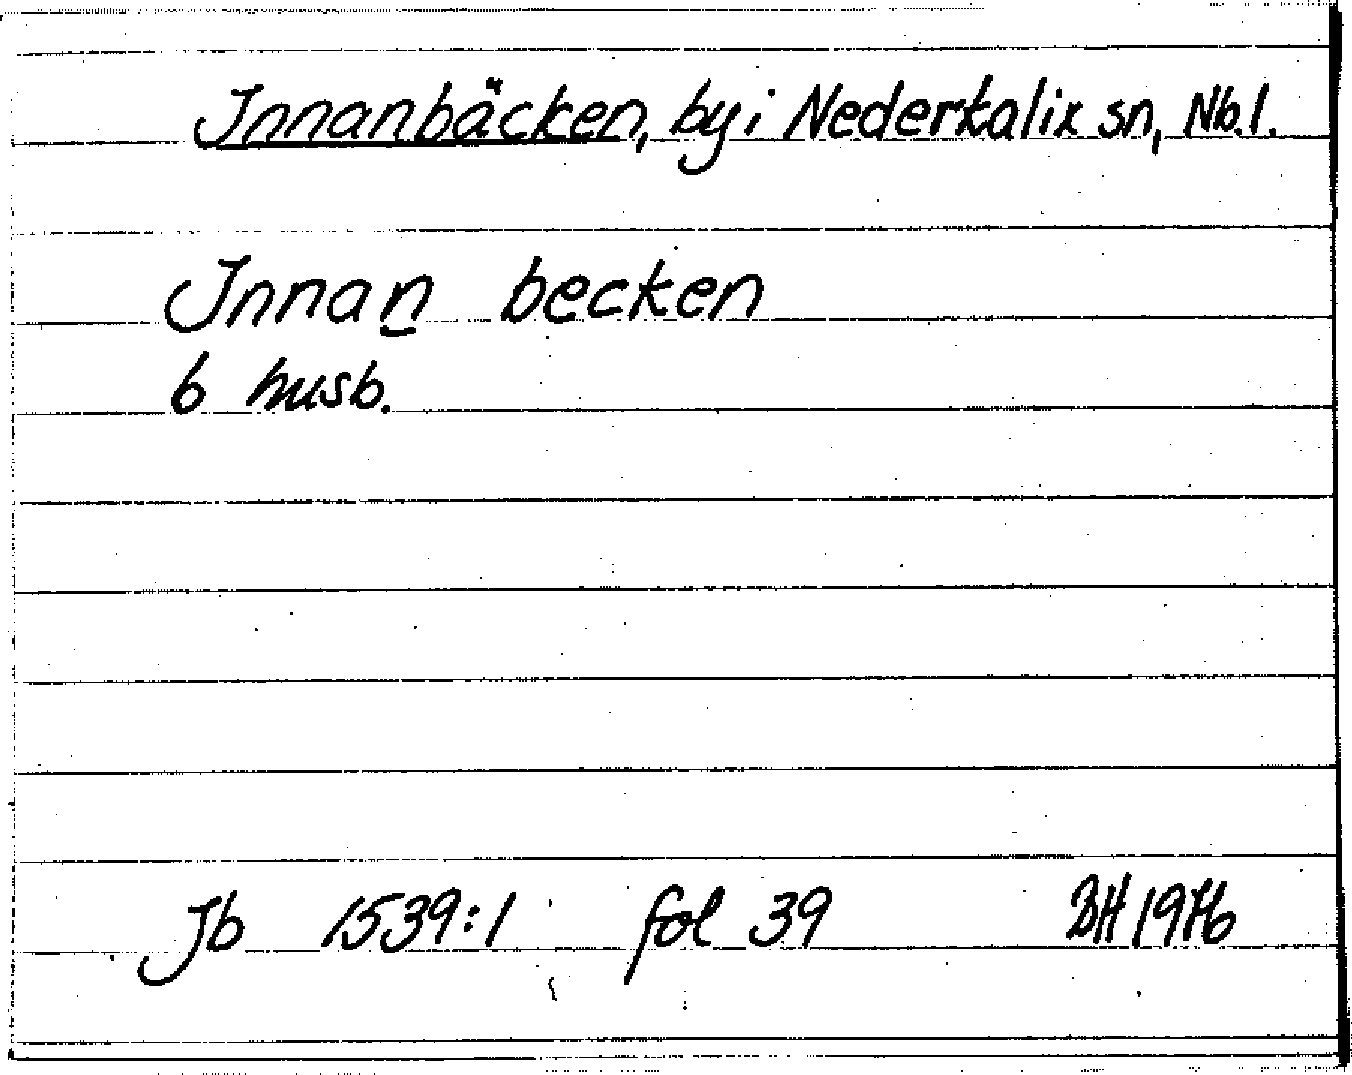 Innanbäcken, by i Nederkalix sn, Nb.l.
Innan becken
6 husb.
Jb 1539:1 fol 39 BH 1976